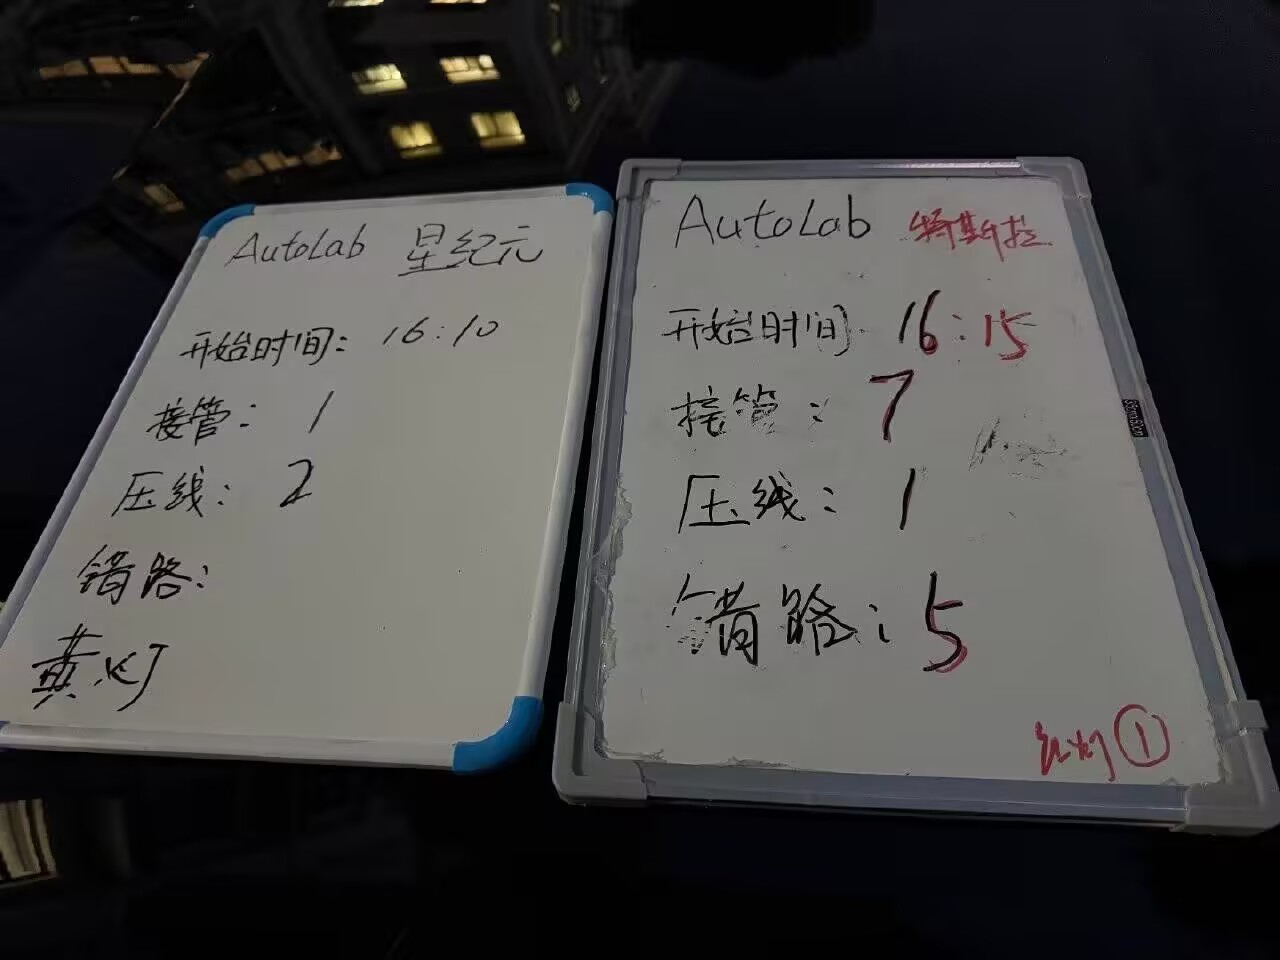 AutoLab 星纪元
开始时间: 16:10
接管: 1
压线: 2
错路:
黄灯
AutoLab 特斯拉
开始时间: 16:15
接管: 7
压线: 1
错路: 5
红灯 ①